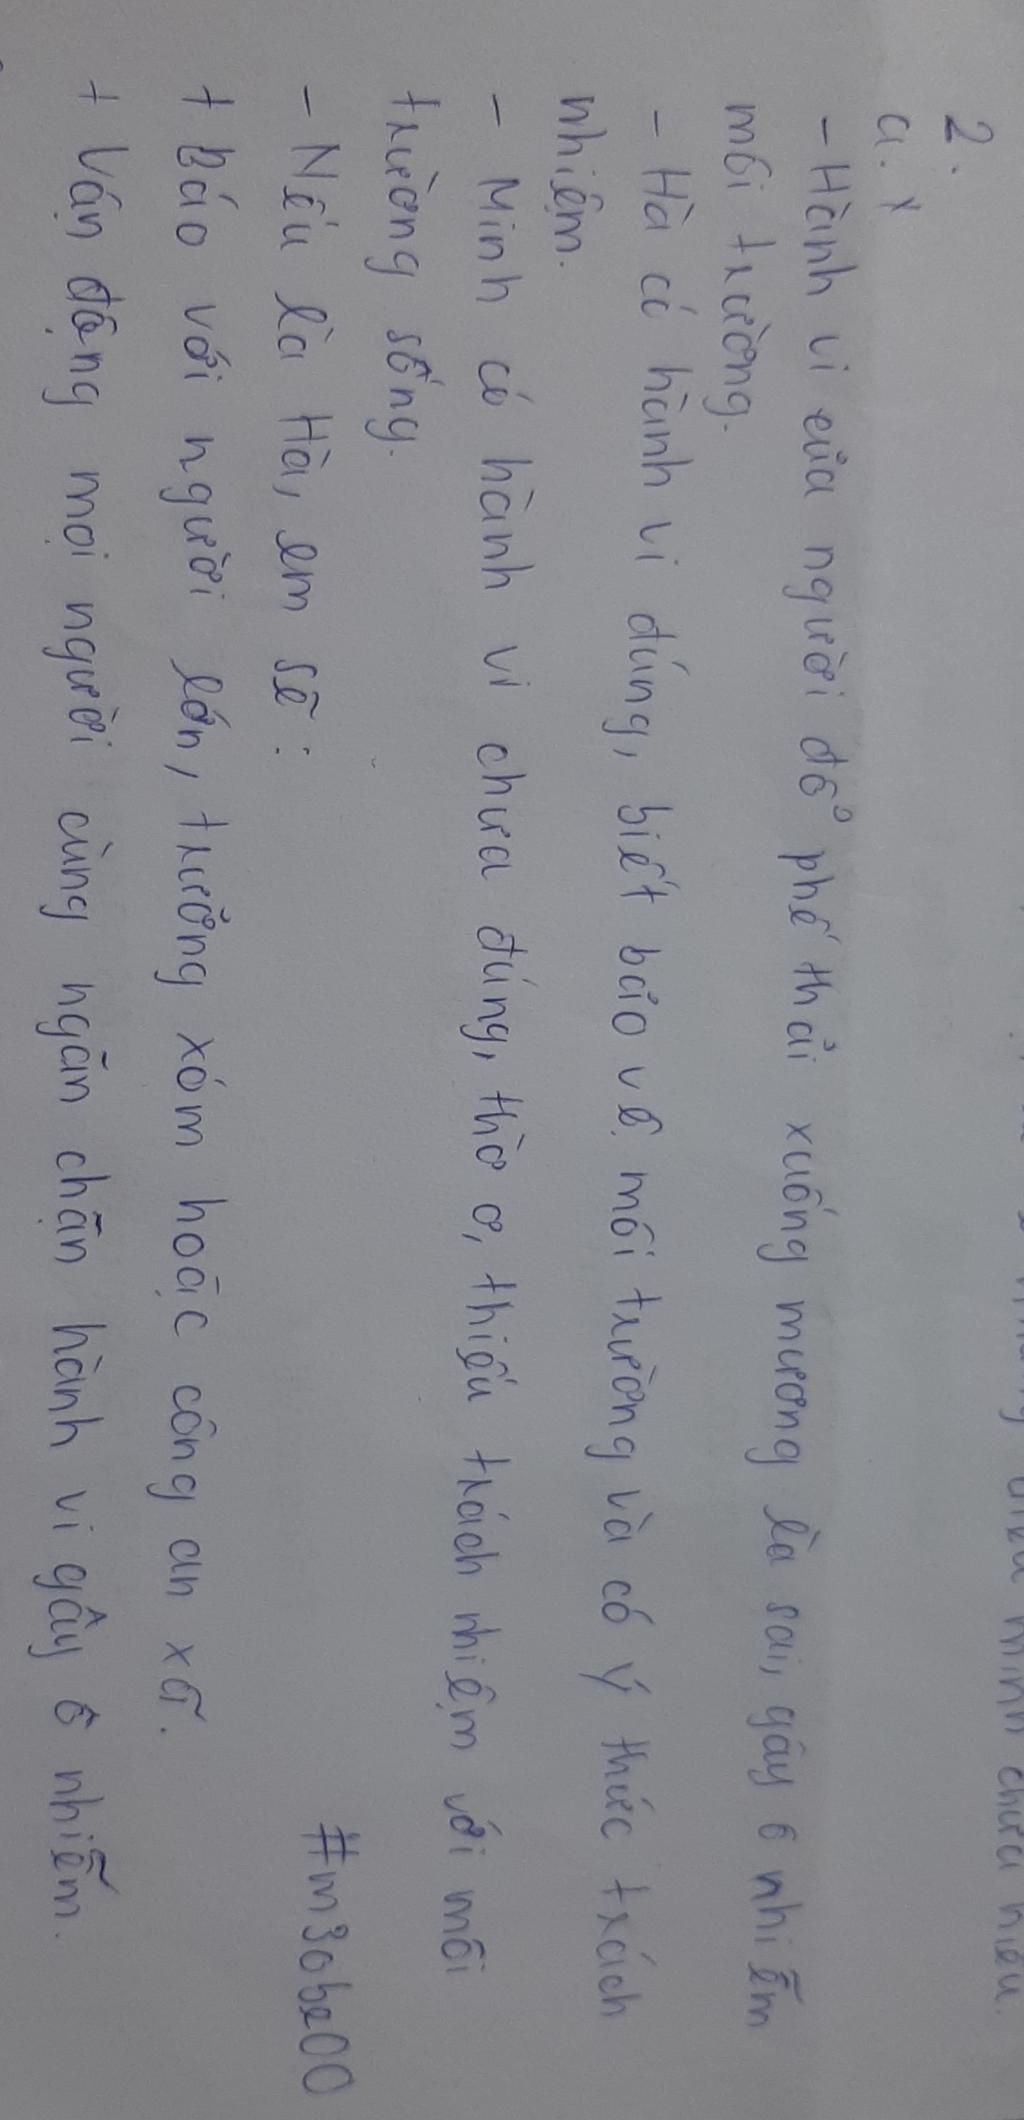 minh chưa hiểu.
2.
a. x
- Hành vi của người đổ phế thải xuống mương là sai, gây ô nhiễm
môi trường.
- Hà có hành vi đúng, biết bảo vệ môi trường và có ý thức trách
nhiệm.
- Minh có hành vi chưa đúng, thờ ơ, thiếu trách nhiệm với môi
trường sống.
- Nếu là Hà, em sẽ:
#m30be00
+ Báo với người lớn, trưởng xóm hoặc công an xã.
+ Vận động mọi người cùng ngăn chặn hành vi gây ô nhiễm.